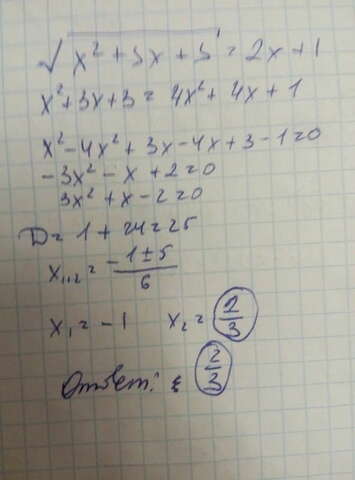 √(x² + 3x + 3) = 2x + 1
x² + 3x + 3 = 4x² + 4x + 1
x² - 4x² + 3x - 4x + 3 - 1 = 0
-3x² - x + 2 = 0
3x² + x - 2 = 0
D = 1 + 24 = 25
x₁,₂ = (-1 ± 5)/6
x₁ = -1 x₂ = 2/3
Ответ: 2/3